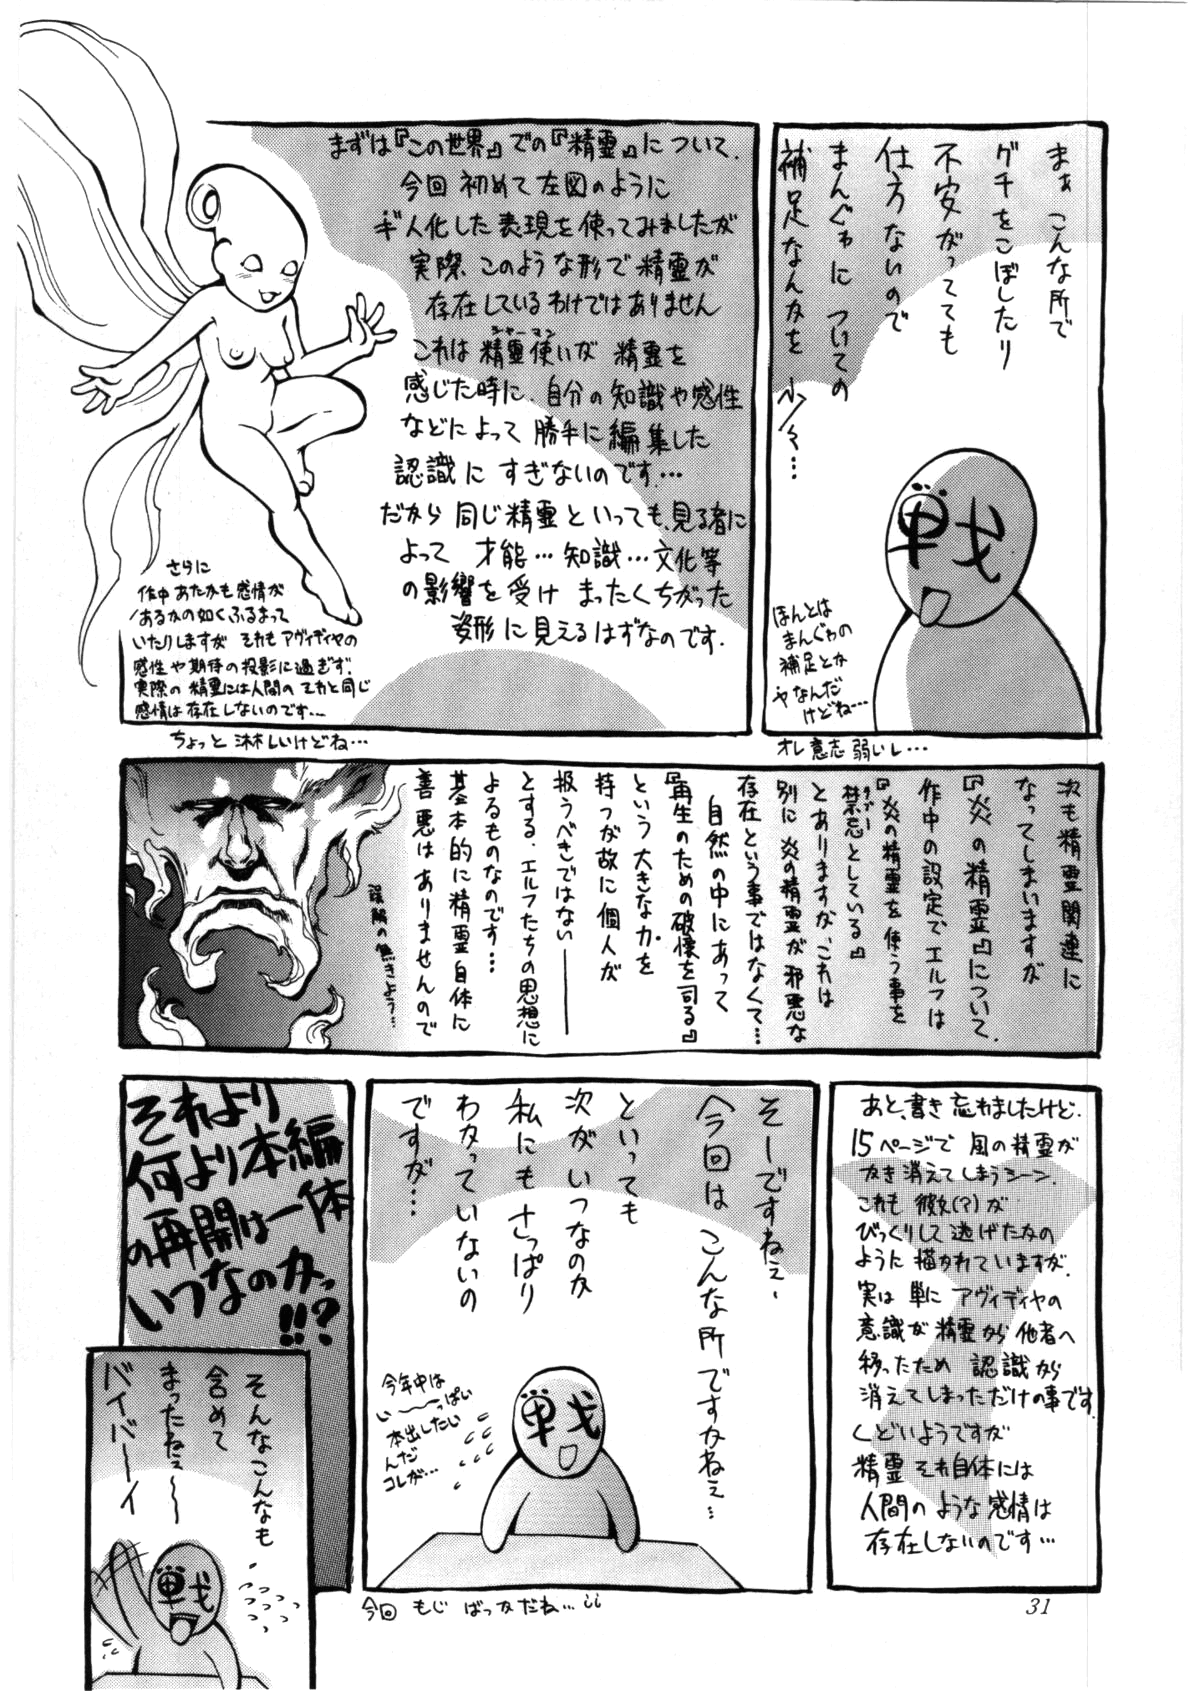 まぁ こんな所で
グチをこぼしたり
不安がってても
仕方ないので
まんがについての
補足なんかを 少々…
戦
ほんとは
まんがの
補足とか
ヤなんだ
けどね…
オレ意志弱いし…
まずは『この世界』での『精霊』について.
今回 初めて左図のように
ギ人化した表現を使ってみましたが
実際、このような形で精霊が
存在しているわけではありません
シャーマン
これは精霊使いが 精霊を
感じた時に、自分の知識や感性
などによって勝手に編集した
認識に すぎないのです…
だから 同じ精霊といっても、見る者に
よって 才能…知識…文化等
の影響を受け まったくちがった
姿形に見えるはずなのです.
さらに
作中 あたかも感情が
あるかの如くふるまって
いたりしますが それも アヴィディヤの
感性や期待の投影に過ぎず、
実際の精霊には人間のそれと同じ
感情は存在しないのです…
ちょっと淋しいけどね…
次も精霊関連に
なってしまいますが
『炎の精霊』について.
作中の設定でエルフは
『炎の精霊を使う事を
タブー
禁忌としている』
とありますが、これは
別に 炎の精霊が邪悪な
存在という事ではなくて…
自然の中にあって
『再生のための破壊を司る』
という大きな力を
持つが故に個人が
扱うべきではない――
とする、エルフたちの思想に
よるものなのです…
基本的に精霊自体に
善悪はありませんので
誤解の無きよう…
あと、書き忘れましたけど.
15ページで 風の精霊が
かき消えてしまうシーン.
これも 彼女(?)が
びっくりして逃げたかの
ように描かれていますが.
実は 単に アヴィディヤの
意識が精霊から他者へ
移ったため 認識から
消えてしまっただけの事です.
くどいようですが
精霊それ自体には
人間のような感情は
存在しないのです…
そーですねぇ、
今回はこんな所ですかねぇ…
といっても
次がいつなのか
私にもさっぱり
わかっていないの
ですが…
今年中は
い〜っぱい
本出したい
んだ
コレが…
戦
今回 もじ ばっかだね…
それより
何より本編
の再開は一体
いつなのかっ
!!?
そんなこんなも、
含めて
まったねェ〜〜
バイバーイ
戦
31